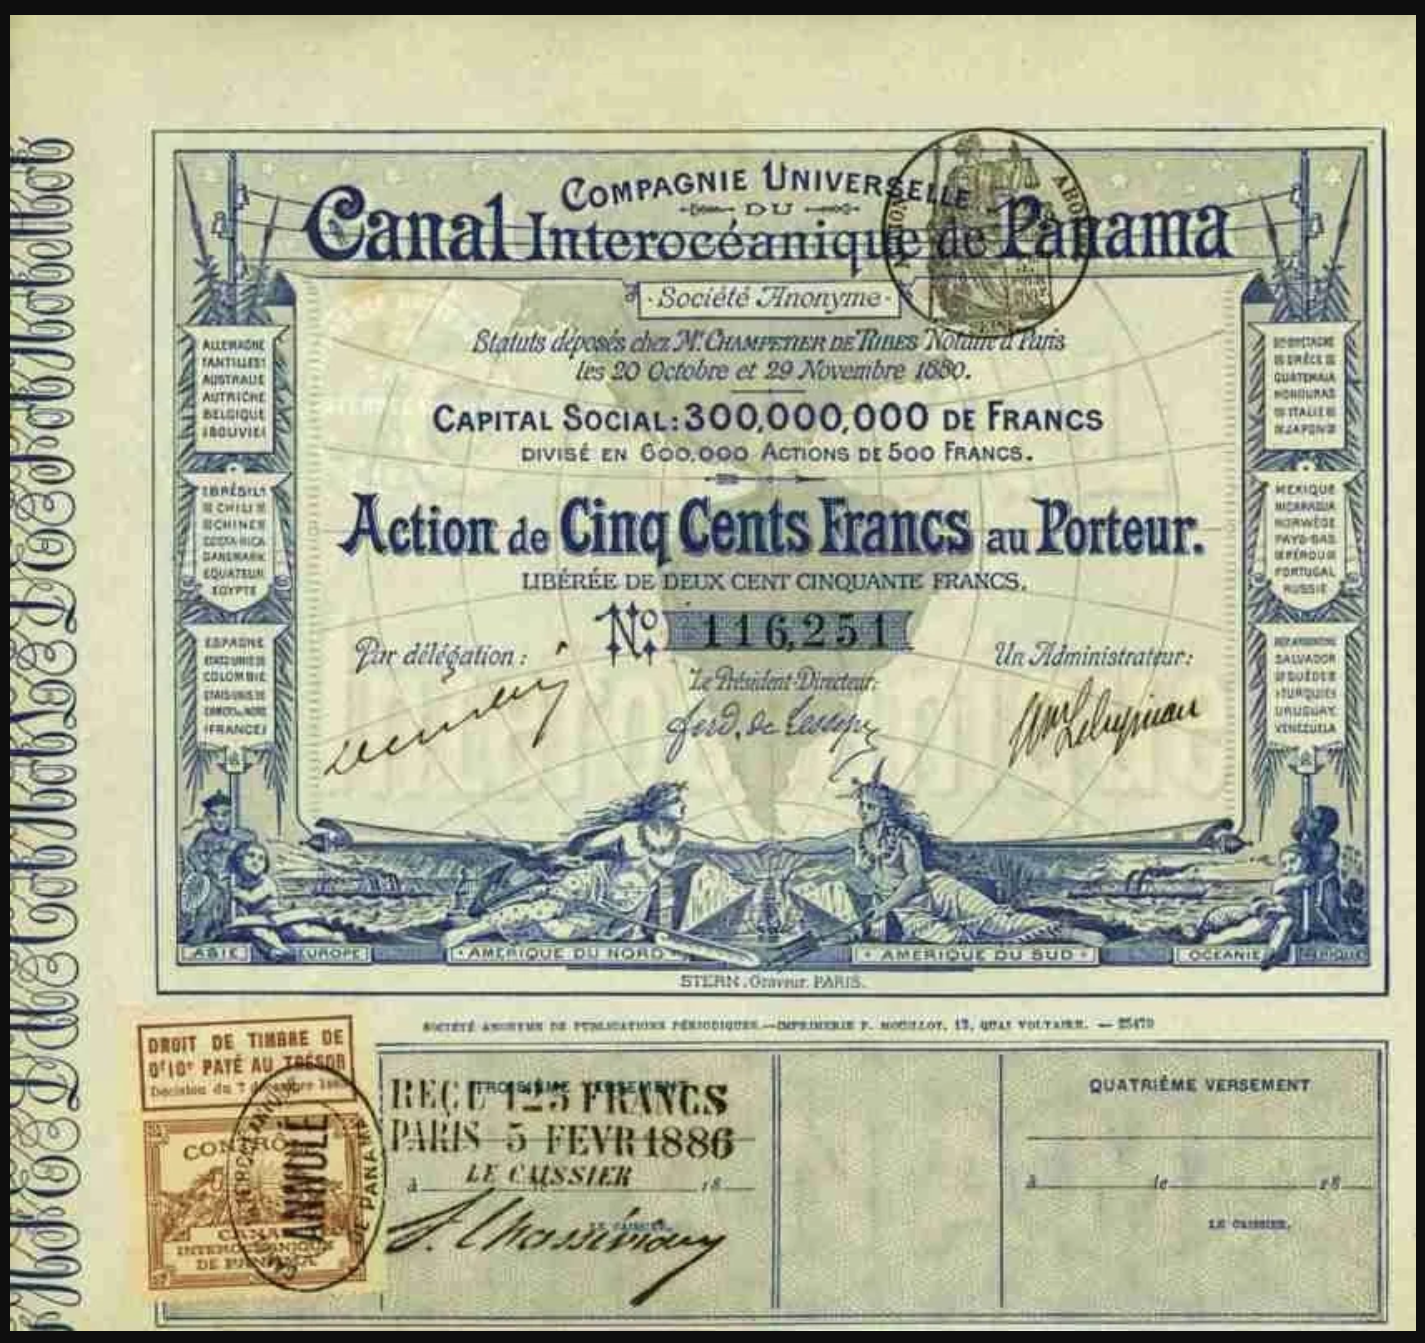 COMPAGNIE UNIVERSELLE
DU
Canal Interocéanique de Panama
Société Anonyme
Statuts déposés chez Mᵉ CHAMPETIER DE RIBES Notaire à Paris
les 20 Octobre et 29 Novembre 1880.
CAPITAL SOCIAL: 300,000,000 DE FRANCS
DIVISÉ EN 600,000 ACTIONS DE 500 FRANCS.
Action de Cinq Cents Francs au Porteur.
LIBÉRÉE DE DEUX CENT CINQUANTE FRANCS.
Nº: 116,251
Par délégation:
Le Président-Directeur:
Un Administrateur:
Ferd. de Lesseps
ALLEMAGNE
ANTILLES
AUSTRALIE
AUTRICHE
BELGIQUE
BOLIVIE
BRÉSIL
CHILI
CHINE
COSTA-RICA
DANEMARK
EQUATEUR
EGYPTE
ESPAGNE
ETATS UNIS DE
COLOMBIE
ETATS-UNIS DE
FRANCE
GDE BRETAGNE
GRÈCE
GUATEMALA
HONDURAS
ITALIE
JAPON
MEXIQUE
NICARAGUA
NORWÈGE
PAYS-BAS
PÉROU
PORTUGAL
RUSSIE
REP. ARGENTINE
SALVADOR
SUÈDE
TURQUIE
URUGUAY
VENEZUELA
ASIE
EUROPE
AMÉRIQUE DU NORD
AMÉRIQUE DU SUD
OCEANIE
AFRIQUE
STERN, Graveur. PARIS.
SOCIÉTÉ ANONYME DE PUBLICATIONS PÉRIODIQUES.—IMPRIMERIE P. MOUILLOT, 13, QUAI VOLTAIRE. — 25479
DROIT DE TIMBRE DE
0ᶠ10ᶜ PAYÉ AU TRÉSOR
Décision du 7
CONTRÔLE
CANAL
INTEROCÉANIQUE
DE PANAMA
ANNULÉ
DE PANAMA
TROISIÈME VERSEMENT
REÇU 125 FRANCS
PARIS 5 FEVR 1886
LE CAISSIER
à 18
LE CAISSIER,
QUATRIÈME VERSEMENT
à le 18
LE CAISSIER,